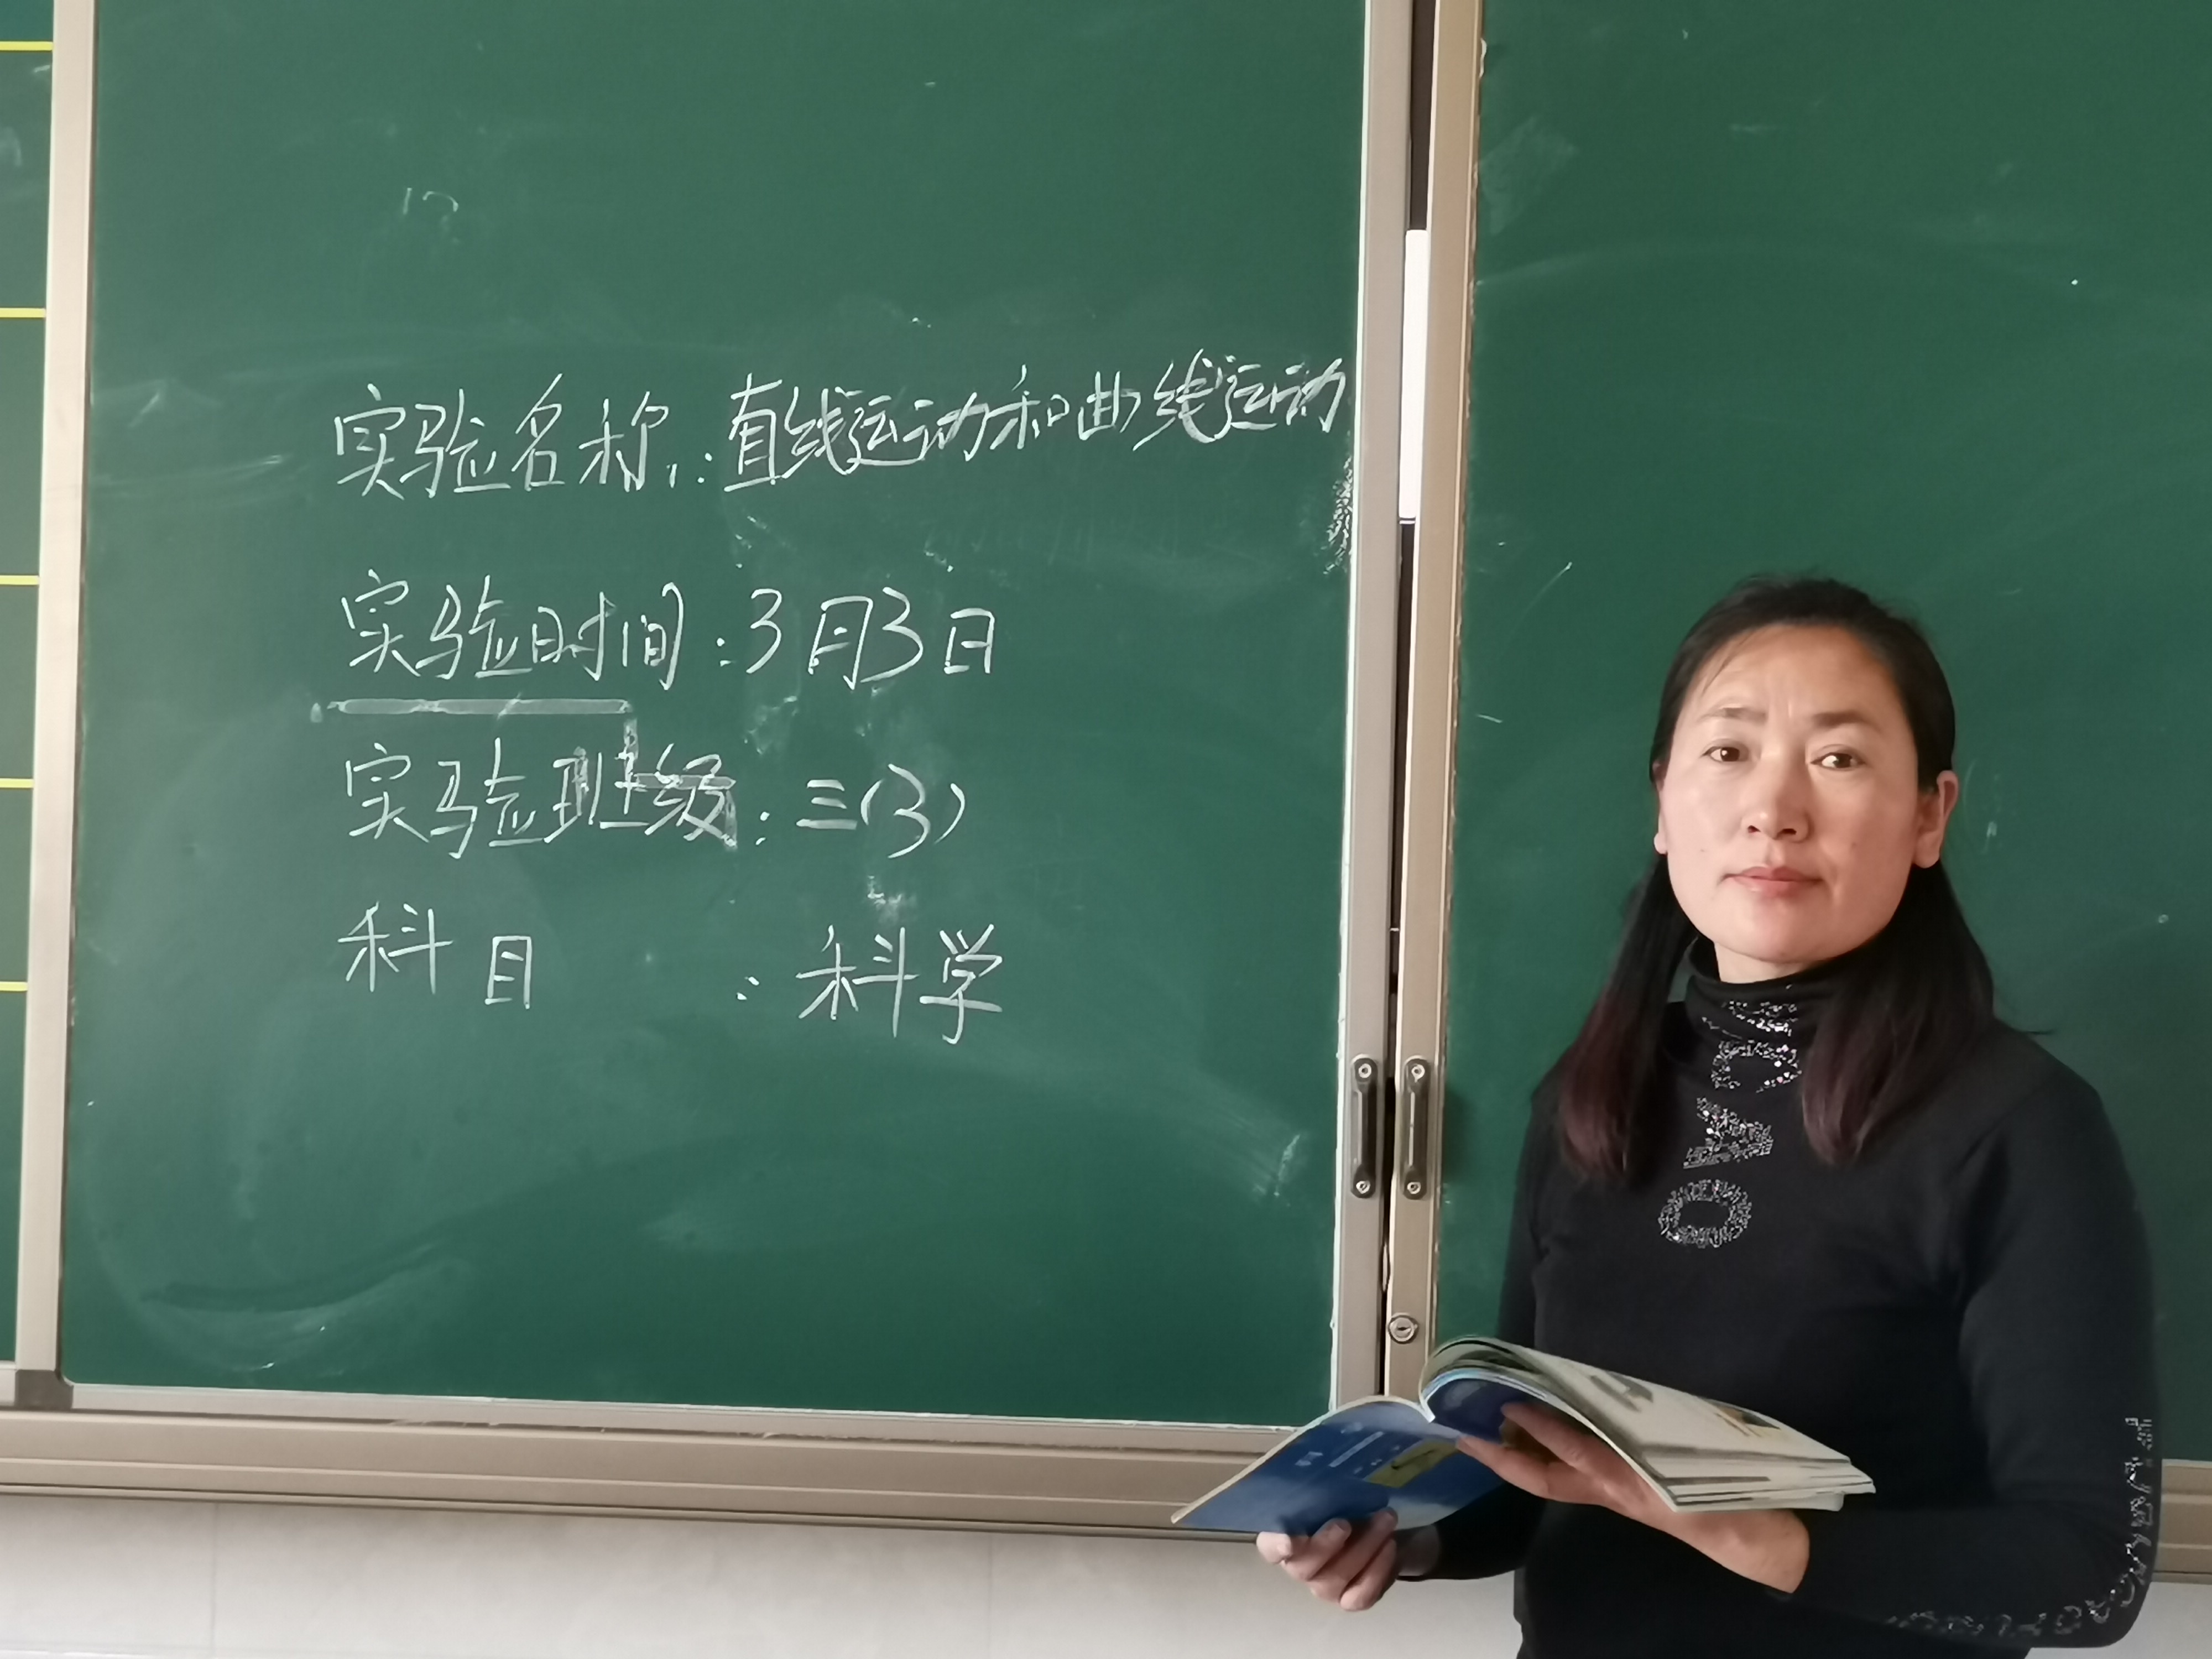 实验名称:直线运动和曲线运动
实验时间:3月3日
实验班级:三(3)
科目:科学